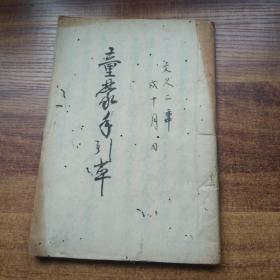 文久二年
戌十月日
童蒙手引草